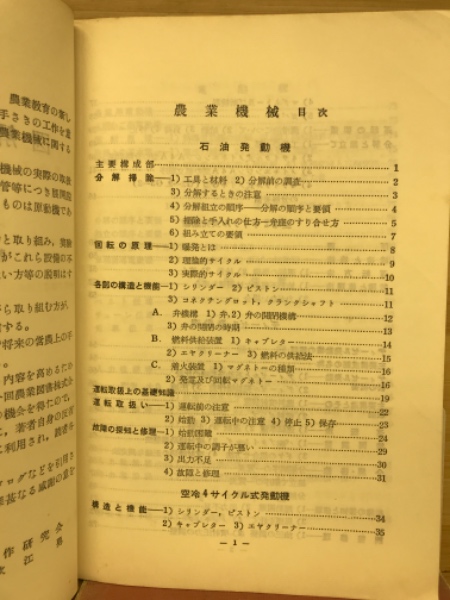 農業機械 目次
石油発動機
主要構成部 1
分解掃除—1) 工具と材料 2) 分解前の調査 2
3) 分解するときの注意 3
4) 分解組立の順序——分解の順序と要領 4
5) 掃除と手入れの仕方—弁座のすり合せ方 5
6) 組み立ての要領 7
回転の原理—1) 爆発とは 8
2) 理論的サイクル 9
3) 実際的サイクル 10
各部の構造と機能—1) シリンダー 2) ピストン 11
3) コネクチングロット, クランクシャフト 11
A. 弁機構 1) 弁, 2) 弁の開閉機構 12
3) 弁の開閉の時期 13
B. 燃料供給装置 1) キャブレター 14
2) エヤクリーナー 3) 燃料の供給法 15
C. 着火装置 1) マグネトーの種類 16
2) 発電及び回転マグネトー
運転取扱上の基礎知識
運転取扱い—1) 運転前の注意
2) 始動 3) 運転中の注意 4) 停止 5) 保存
故障の探知と修理—1) 始動困難
2) 運転中の調子が悪い
3) 出力不足
4) 故障と修理 31
空冷4サイクル式発動機
構造と機能—1) シリンダー, ピストン 34
2) キャブレター 3) エヤクリーナー 35
— 1 —
農業教育の新し
手さきの工作を重
農業機械に関する
機械の実際の取扱
管等につき展開図
ものは原動機であ
と取り組み, 実験
がこれら設備の不
い方等の説明はす
ら取り組む方が,
する。
将来の営農上の手
内容を高めるため
一回農業図書株式会
機会を得たので,
, 著者自身の反省
に利用され, 読者各
ログなどを引用さ
甚なる感謝の意を
作研究会